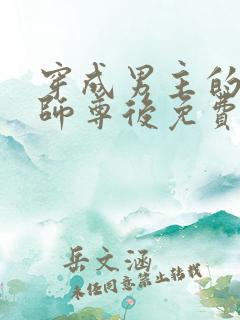 穿成男主的
師尊後免費
岳文涵
未经同意禁止转载